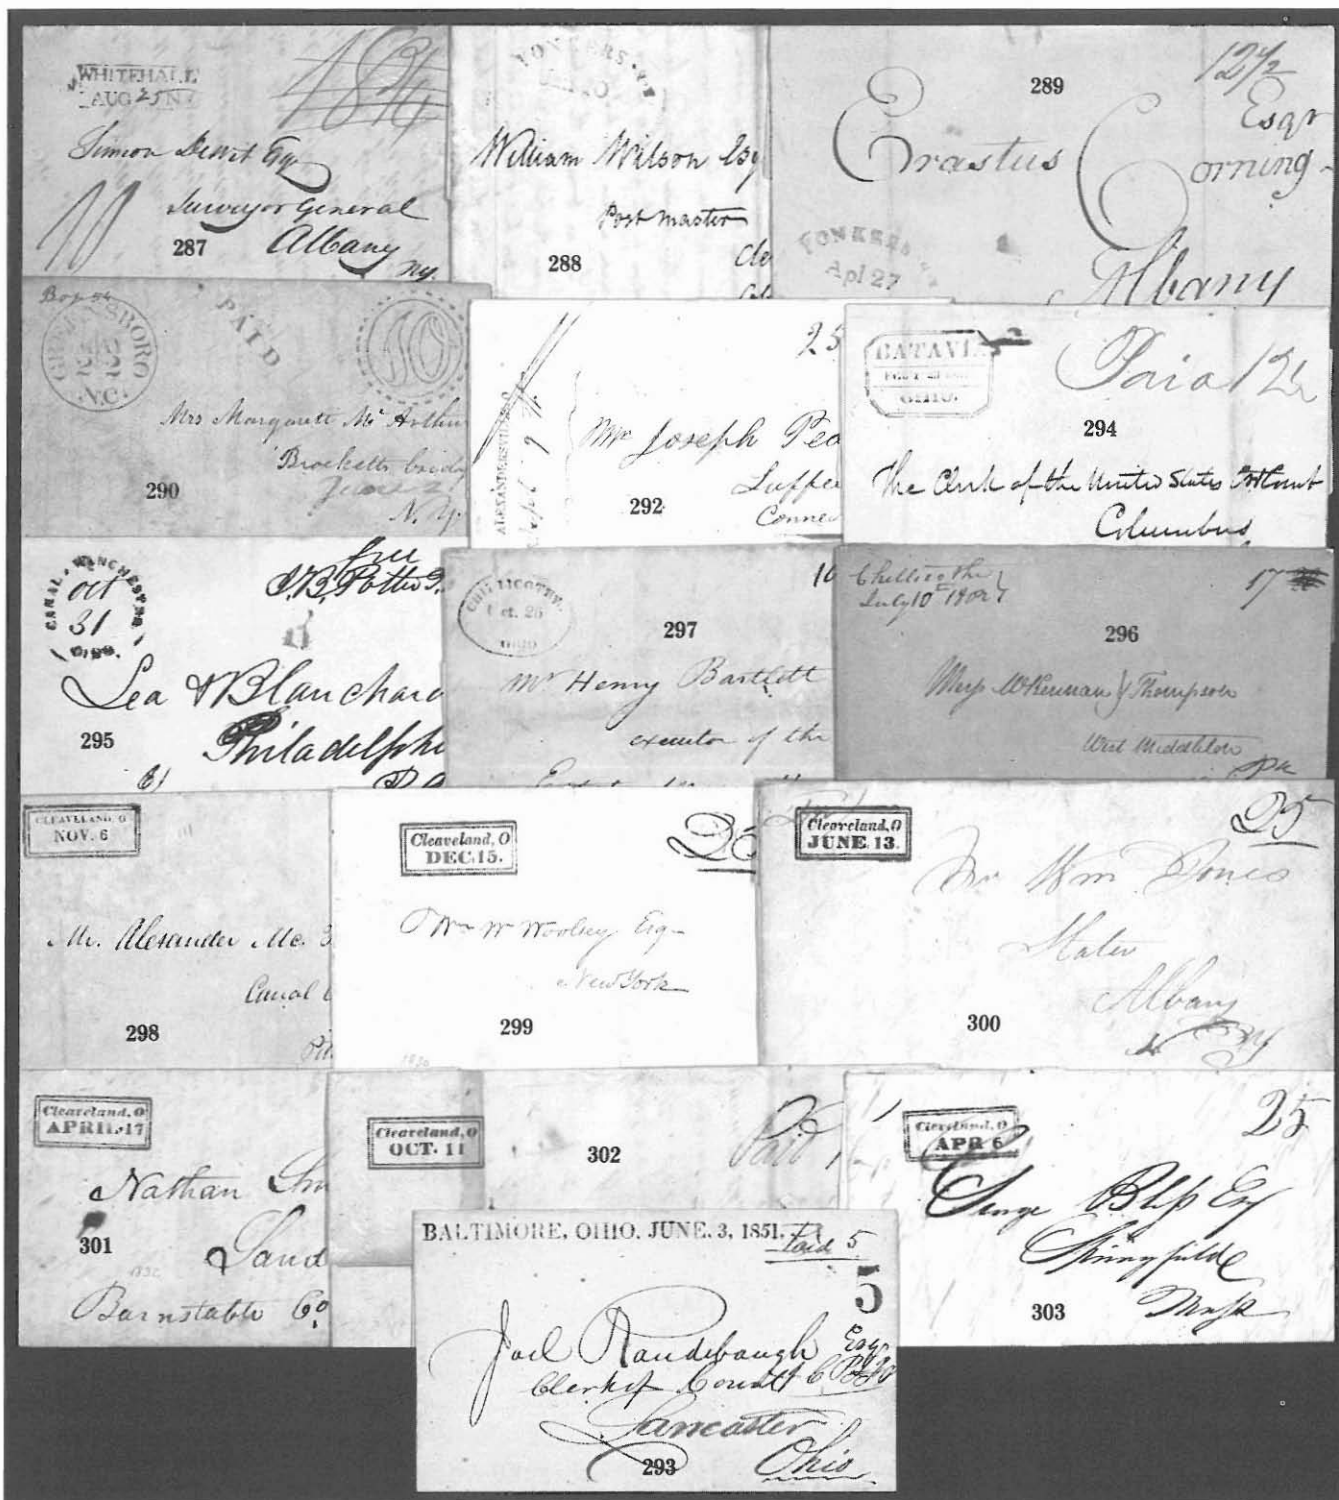 WHITEHALL
AUG 25 N.Y
18 3/4
Simeon Dewit Esqr
Surveyor General
287
Albany
Ny.
YONKERS
William Wilson Esq
Post master
288
289
12 1/2
Esqr
Erastus Corning
YONKERS
Apl 27
Albany
Box 54
GREENSBORO
N.C.
PAID
10
Mrs Margarett Mc Arthur
Brocketts bridge
290
N.Y.
25
ALEXANDERSVILLE O
Mr Joseph Pec
292
Suffie
Connec
BATAVI
OHIO.
Paid 12½
294
The Clerk of the United States
Columbus
CANAL WINCHESTER
Oct
31
OHIO.
free
Lea & Blanchard
295
Philadelphi
Pa
CHILLICOTHE
Oct. 26
OHIO
16
297
Mr Henry Bartlett
executor of the
Chillicothe
July 10th 1802
17
296
Mess McKennan & Thompson
West Middleton
Pa
CLEAVELAND, O
NOV. 6
Mr. Alexander Mc.
Canal
298
Cleaveland, O
DEC. 15.
25
Wm W Woolsey Esq
New York
299
1830
Cleaveland, O
JUNE. 13.
25
Mr Wm Jones
Slater
Albany
300
NY
Cleaveland, O
APRIL. 17
Nathan
301
Sand
1832
Barnstable Co.
Cleaveland, O
OCT. 11
302
Paid
Cleveland, O
APR 6
25
George Bliss Esq
Springfield
303
Mass
BALTIMORE, OHIO. JUNE. 3, 1851.
Paid 5
5
Joel Raudebaugh Esq
Clerk of Court
Lancaster
293
Ohio